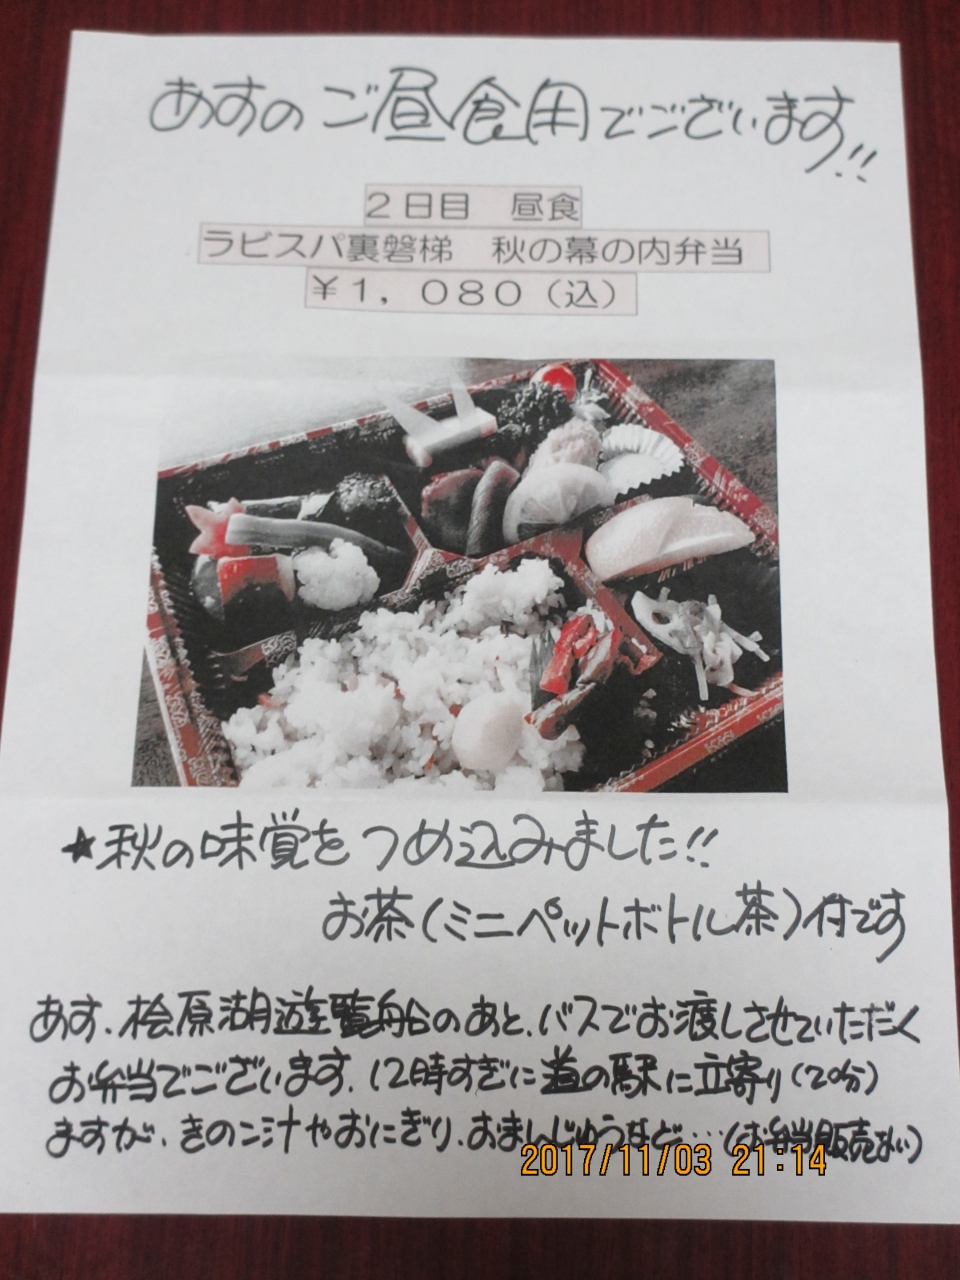 あすのご昼食用でございます!!
２日目　昼食
ラビスパ裏磐梯　秋の幕の内弁当
￥１，０８０（込）
★秋の味覚をつめ込みました!!
お茶(ミニペットボトル茶)付です
あす、桧原湖遊覧船のあと、バスでお渡しさせていただく
お弁当でございます。12時すぎに道の駅に立寄り(20分)
ますが、きのこ汁やおにぎり、おまんじゅうなど…(お弁当販売ない)
2017/11/03 21:14